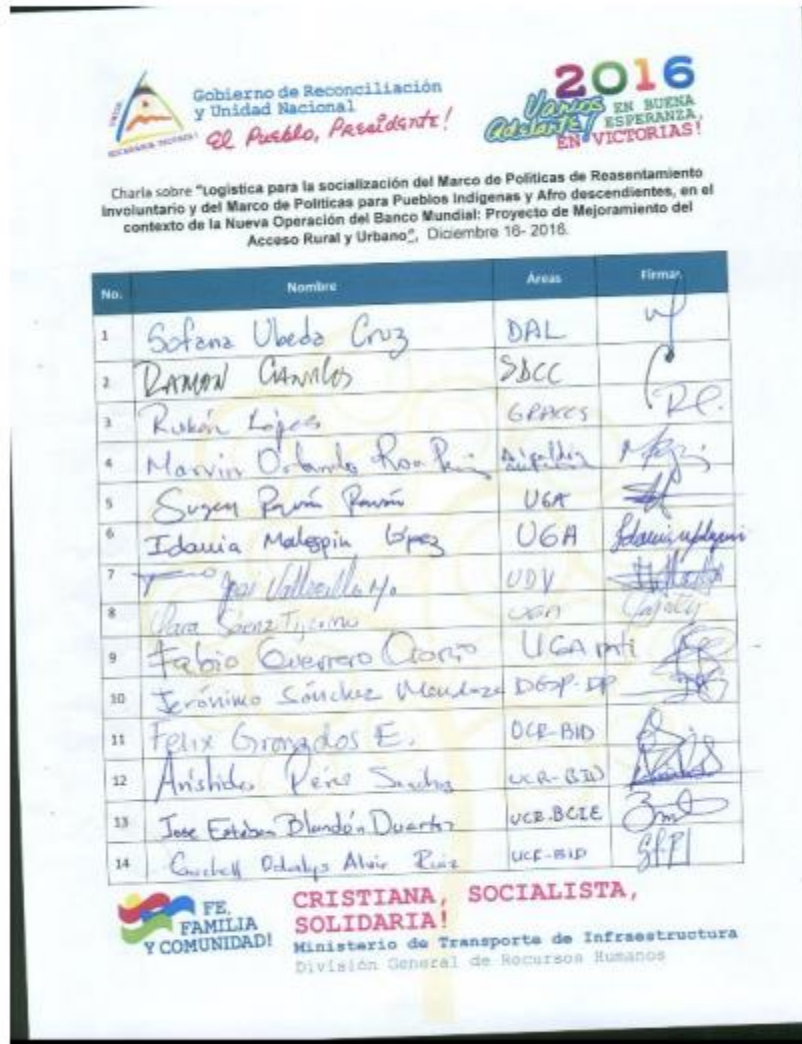 Gobierno de Reconciliación
y Unidad Nacional
El Pueblo, Presidente!
2016
Vamos Adelante! EN BUENA
ESPERANZA,
EN VICTORIAS!
Charla sobre "Logística para la socialización del Marco de Políticas de Reasentamiento
Involuntario y del Marco de Políticas para Pueblos Indígenas y Afro descendientes, en el
contexto de la Nueva Operación del Banco Mundial: Proyecto de Mejoramiento del
Acceso Rural y Urbano", Diciembre 16- 2016.
No. Nombre Áreas Firmas
1 Sofana Ubeda Cruz DAL
2 RAMON CANALES SDCC
3 Rubén López GPACCS R.L.
4 Marvin Orlando Roa
5 UGA
6 Idania Malespin López UGA
7 José Vallecillo UDV
8 Clara Sáenz UGA
9 Fabio Guerrero Osorio UGA mti
10 Jerónimo Sánchez Mendoza DGDP-DP
11 Felix Granados E. UCR-BID
12 Aristides Pérez Sánchez UCR-BID
13 Jose Esteban Blandón Duartes UCR.BCIE
14 Odalys Ruiz UCR-BID
FE,
FAMILIA
Y COMUNIDAD!
CRISTIANA, SOCIALISTA,
SOLIDARIA!
Ministerio de Transporte de Infraestructura
División General de Recursos Humanos